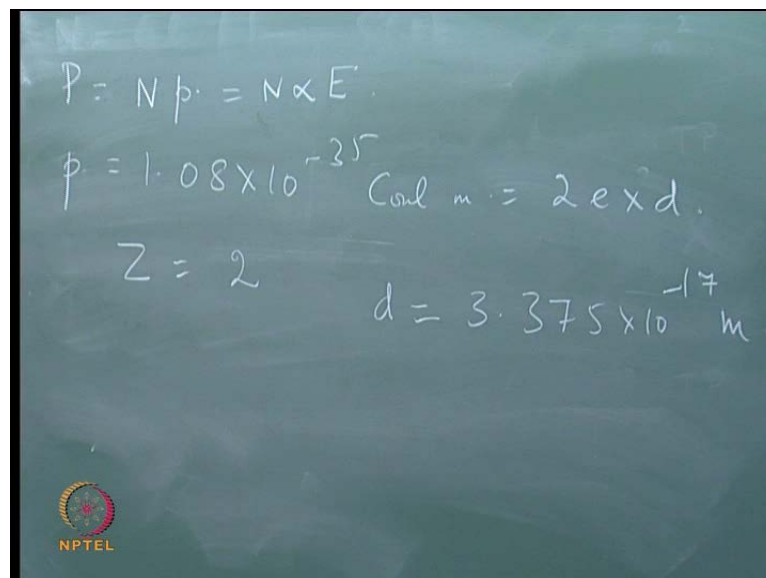 P = N p. = N α E.
p. = 1.08 × 10⁻³⁵ Coul m. = 2e × d.
Z = 2
d = 3.375 × 10⁻¹⁷ m
NPTEL